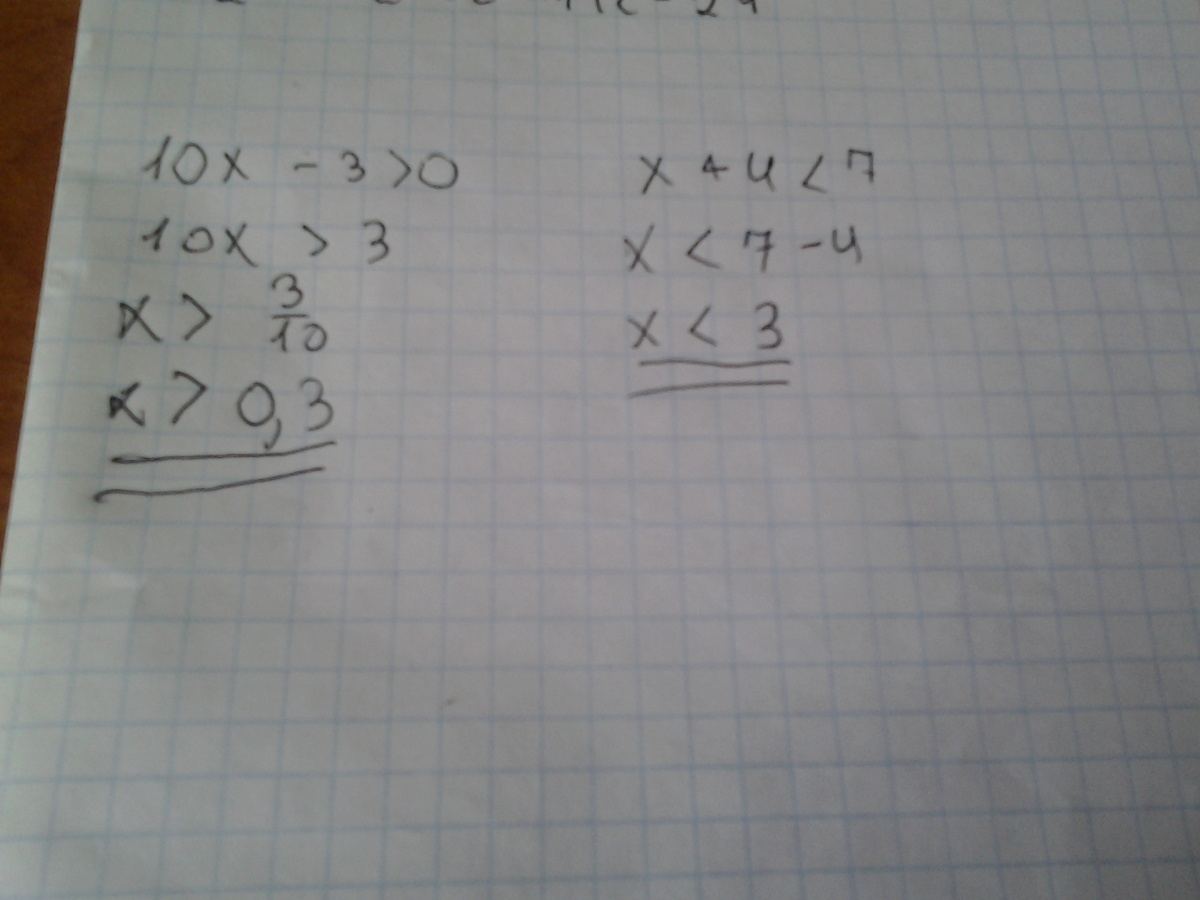 10x - 3 > 0
10x > 3
x > 3/10
x > 0,3
x + 4 < 7
x < 7 - 4
x < 3